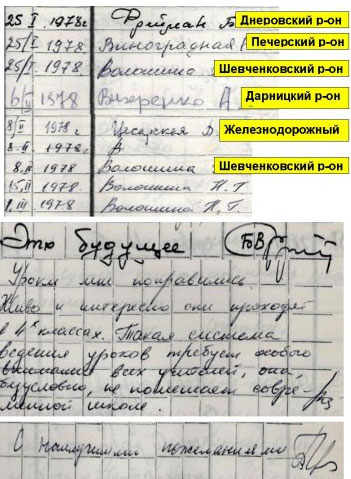 25 I. 1978г Фридман Б Днеровский р-он
25/I. 1978 Виноградная Печерский р-он
25/I 1978 Волошина Шевченковский р-он
6/II 1978 А Дарницкий р-он
8/II 1978г Д. Железнодорожный
8-II. 1978г
8.II 1978 Волошина Шевченковский р-он
15.II 1978 Волошина Н.Т
1.III 1978 Волошина Н.Т.
Это будущее
Уроки мне понравились.
Живо и интересно они проходят
в 4х классах. Такая система
ведения уроков требует особого
внимания всех учителей, она,
безусловно, не помешает совре-
менной школе.
С наилучшими пожеланиями